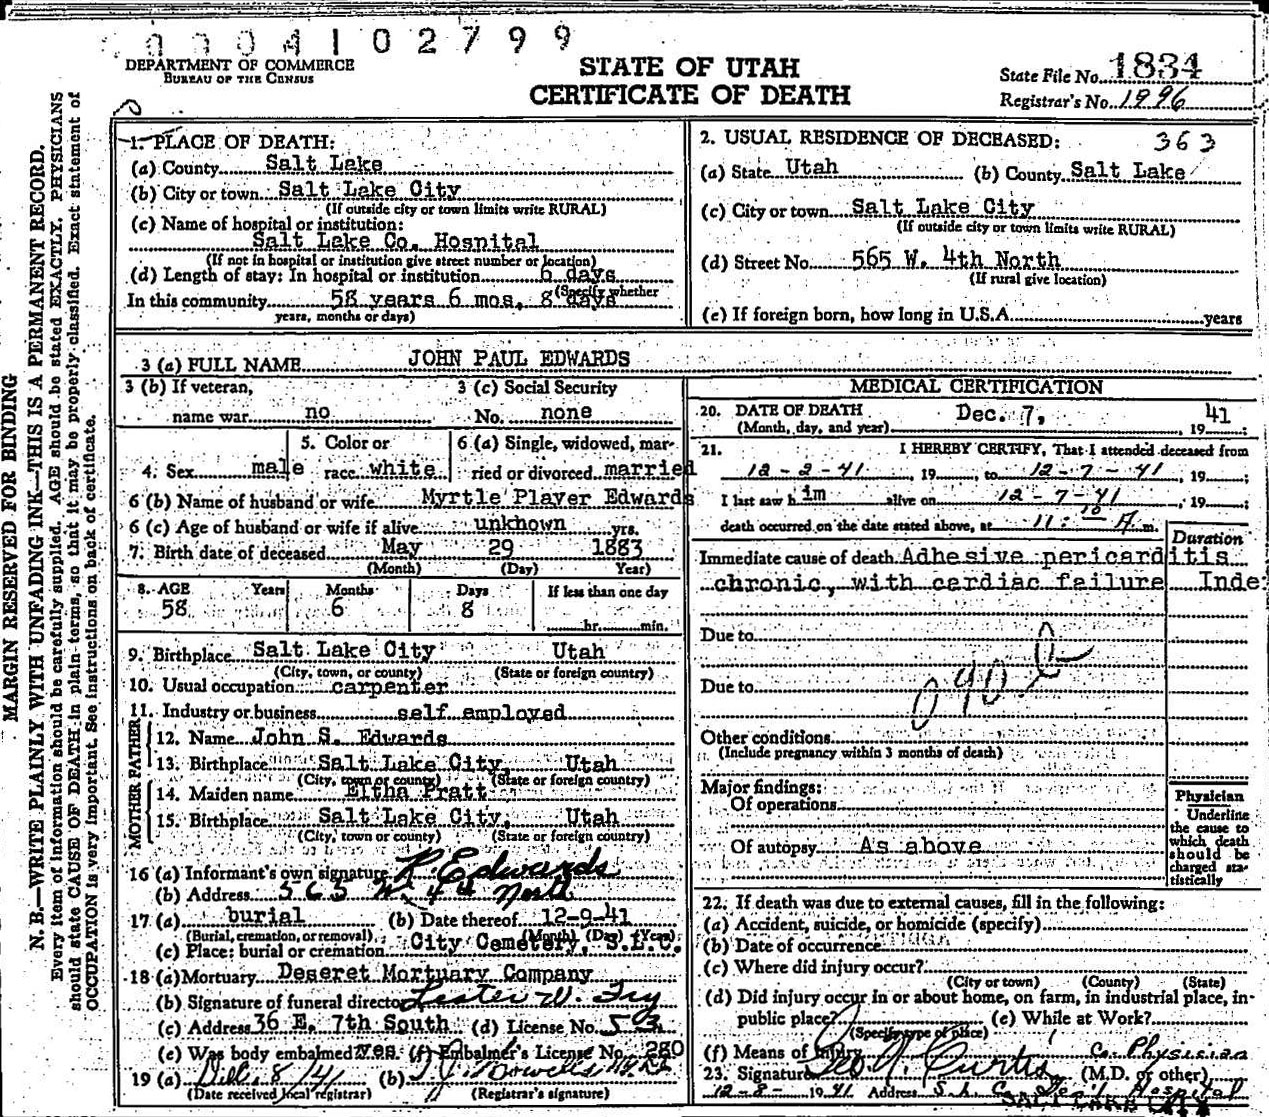 0004102799
DEPARTMENT OF COMMERCE
BUREAU OF THE CENSUS
STATE OF UTAH
CERTIFICATE OF DEATH
State File No. 1834
Registrar's No. 1996
MARGIN RESERVED FOR BINDING
N. B.—WRITE PLAINLY WITH UNFADING INK—THIS IS A PERMANENT RECORD.
Every item of information should be carefully supplied. AGE should be stated EXACTLY. PHYSICIANS
should state CAUSE OF DEATH in plain terms, so that it may be properly classified. Exact statement of
OCCUPATION is very important. See instructions on back of certificate.
1. PLACE OF DEATH:
(a) County Salt Lake
(b) City or town Salt Lake City
(If outside city or town limits write RURAL)
(c) Name of hospital or institution:
Salt Lake Co. Hospital
(If not in hospital or institution give street number or location)
(d) Length of stay: In hospital or institution 6 days
(Specify whether
In this community 58 years 6 mos. 8 days
years, months or days)
2. USUAL RESIDENCE OF DECEASED: 363
(a) State Utah (b) County Salt Lake
(c) City or town Salt Lake City
(If outside city or town limits write RURAL)
(d) Street No. 565 W. 4th North
(If rural give location)
(e) If foreign born, how long in U.S.A. years
3 (a) FULL NAME JOHN PAUL EDWARDS
3 (b) If veteran, 3 (c) Social Security
name war no No. none
4. Sex male 5. Color or race white 6 (a) Single, widowed, married or divorced married
6 (b) Name of husband or wife Myrtle Player Edwards
6 (c) Age of husband or wife if alive unkhown yrs.
7. Birth date of deceased May 29 1883
(Month) (Day) Year)
8. AGE Years Months Days If less than one day
58 6 8 hr. min.
9. Birthplace Salt Lake City Utah
(City, town, or county) (State or foreign country)
10. Usual occupation carpenter
11. Industry or business self employed
FATHER
12. Name John S. Edwards
13. Birthplace Salt Lake City, Utah
(City, town or county) (State or foreign country)
MOTHER
14. Maiden name Eltha Pratt
15. Birthplace Salt Lake City, Utah
(City, town or county) (State or foreign country)
16 (a) Informant's own signature R. Edwards
(b) Address 565 W. 4th North
17 (a) burial (b) Date thereof 12-9-41
(Burial, cremation, or removal) (Month) (Day) (Year)
(c) Place: burial or cremation City Cemetery, S.L.C.
18 (a) Mortuary Deseret Mortuary Company
(b) Signature of funeral director Lester W. Fry
(c) Address 36 E. 7th South (d) License No. 53
(e) Was body embalmed? yes (f) Embalmer's License No. 280
19 (a) Dec. 8/41 (b)
(Date received local registrar) (Registrar's signature)
MEDICAL CERTIFICATION
20. DATE OF DEATH Dec. 7, 1941;
(Month, day, and year)
21. I HEREBY CERTIFY, That I attended deceased from
12-2-41, 19, to 12-7-41, 19;
I last saw him alive on 12-7-41, 19;
death occurred on the date stated above, at 11:10 A m.
Duration
Immediate cause of death Adhesive pericarditis
chronic, with cardiac failure Inde
Due to
Due to
Other conditions
(Include pregnancy within 3 months of death)
Major findings:
Of operations
Of autopsy As above
Physician
Underline
the cause to
which death
should be
charged sta-
tistically
22. If death was due to external causes, fill in the following:
(a) Accident, suicide, or homicide (specify)
(b) Date of occurrence
(c) Where did injury occur?
(City or town) (County) (State)
(d) Did injury occur in or about home, on farm, in industrial place, in-
public place? (e) While at Work?
(Specify type of place)
(f) Means of Injury
Co. Physician
23. Signature Geo. N. Curtis (M.D. or other)
12-8-1941 Address S. L. C. Hospital
SALT LAKE CITY